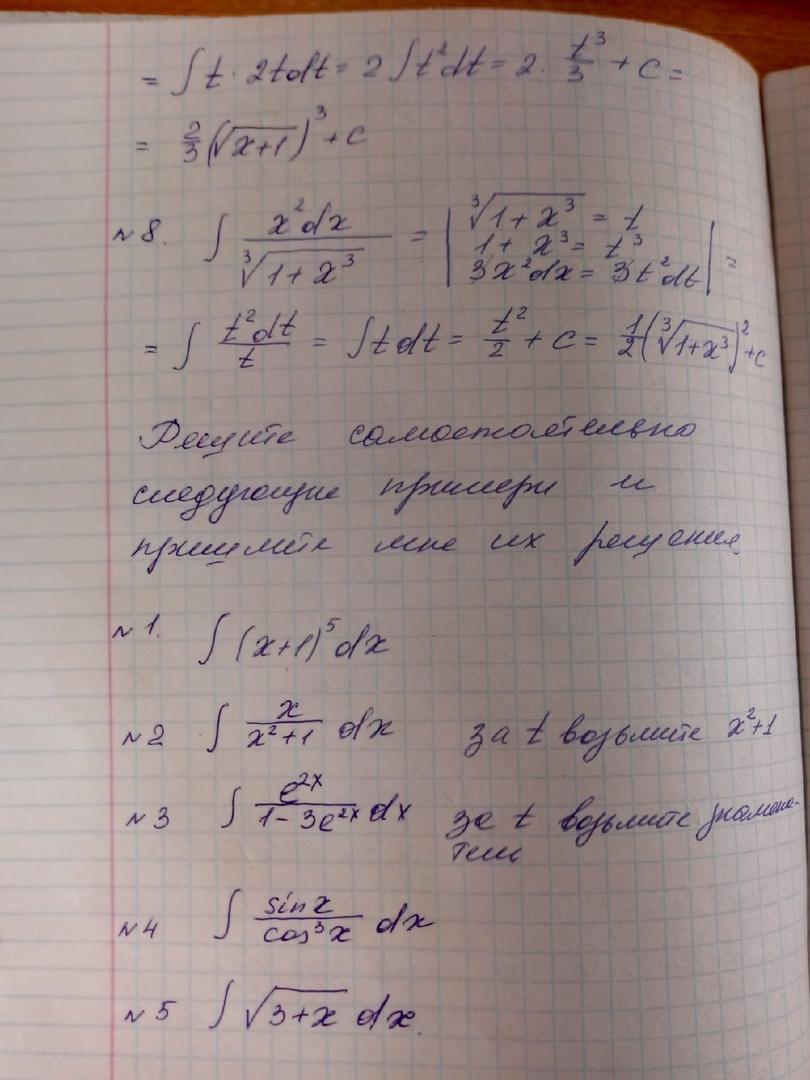 = ∫ t · 2tdt = 2 ∫ t² dt = 2 · t³/3 + C =
= 2/3 (√(x+1))³ + C
№ 8. ∫ x² dx / ∛(1 + x³) = | ∛(1 + x³) = t
1 + x³ = t³
3x² dx = 3t² dt | =
= ∫ t² dt / t = ∫ t dt = t²/2 + C = 1/2 (∛(1+x³))² + C
Решите самостоятельно
следующие примеры и
пришлите мне их решения
№ 1. ∫ (x+1)⁵ dx
№ 2 ∫ x/(x²+1) dx за t возьмите x²+1
№ 3 ∫ e²ˣ/(1 - 3e²ˣ) dx за t возьмите знамена-
тель
№ 4 ∫ sin x / cos³ x dx
№ 5 ∫ √(3+x) dx.